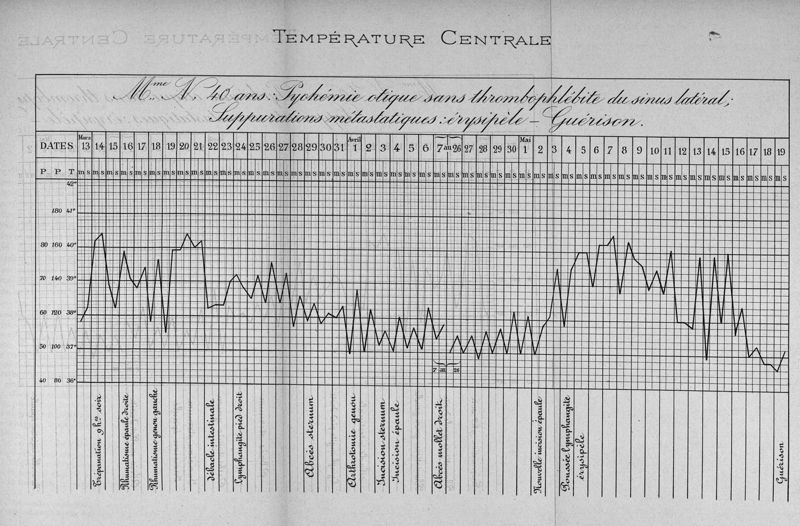 TEMPÉRATURE CENTRALE
Mme N. 40 ans: Pyohémie otique sans thrombophlébite du sinus latéral;
Suppurations métastatiques: érysipèle – Guérison.
Mars Avril Mai
DATES 13 14 15 16 17 18 19 20 21 22 23 24 25 26 27 28 29 30 31 1 2 3 4 5 6 7 au 26 27 28 29 30 1 2 3 4 5 6 7 8 9 10 11 12 13 14 15 16 17 18 19
P P T m s m s m s m s m s m s m s m s m s m s m s m s m s m s m s m s m s m s m s m s m s m s m s m s m s m s m s m s m s m s m s m s m s m s m s m s m s m s m s m s m s m s m s m s m s m s m s m s m s m s
42°
180 41°
80 160 40°
70 140 39°
60 120 38°
50 100 37°
40 80 36°
7 au 26
Trépanation 9 hes soir
Rhumatisme épaule droite
Rhumatisme genou gauche
débacle intestinale
Lymphangite pied droit
Abcès sternum
Arthrotomie genou
Incision sternum
Incision épaule
Abcès mollet droit
Nouvelle incision épaule
Poussée lymphangite
érysipèle
Guérison